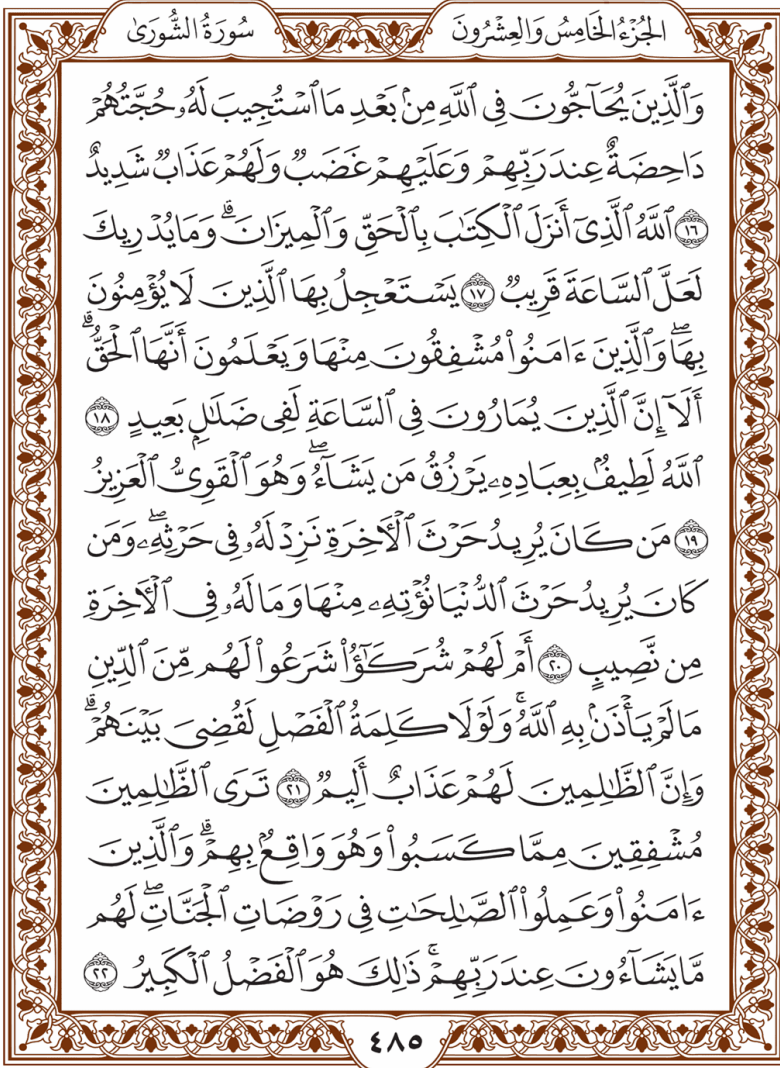 الجُزْءُ الخَامِسُ وَالعِشْرُونَ
سُورَةُ الشُّورَىٰ
وَٱلَّذِينَ يُحَآجُّونَ فِي ٱللَّهِ مِنۢ بَعۡدِ مَا ٱسۡتُجِيبَ لَهُۥ حُجَّتُهُمۡ
دَاحِضَةٌ عِندَ رَبِّهِمۡ وَعَلَيۡهِمۡ غَضَبٞ وَلَهُمۡ عَذَابٞ شَدِيدٌ
١٦ ٱللَّهُ ٱلَّذِيٓ أَنزَلَ ٱلۡكِتَٰبَ بِٱلۡحَقِّ وَٱلۡمِيزَانَۗ وَمَا يُدۡرِيكَ
لَعَلَّ ٱلسَّاعَةَ قَرِيبٞ ١٧ يَسۡتَعۡجِلُ بِهَا ٱلَّذِينَ لَا يُؤۡمِنُونَ
بِهَاۖ وَٱلَّذِينَ ءَامَنُواْ مُشۡفِقُونَ مِنۡهَا وَيَعۡلَمُونَ أَنَّهَا ٱلۡحَقُّۗ
أَلَآ إِنَّ ٱلَّذِينَ يُمَارُونَ فِي ٱلسَّاعَةِ لَفِي ضَلَٰلِۭ بَعِيدٍ ١٨
ٱللَّهُ لَطِيفُۢ بِعِبَادِهِۦ يَرۡزُقُ مَن يَشَآءُۖ وَهُوَ ٱلۡقَوِيُّ ٱلۡعَزِيزُ
١٩ مَن كَانَ يُرِيدُ حَرۡثَ ٱلۡأٓخِرَةِ نَزِدۡ لَهُۥ فِي حَرۡثِهِۦۖ وَمَن
كَانَ يُرِيدُ حَرۡثَ ٱلدُّنۡيَا نُؤۡتِهِۦ مِنۡهَا وَمَا لَهُۥ فِي ٱلۡأٓخِرَةِ
مِن نَّصِيبٍ ٢٠ أَمۡ لَهُمۡ شُرَكَٰٓؤُاْ شَرَعُواْ لَهُم مِّنَ ٱلدِّينِ
مَا لَمۡ يَأۡذَنۢ بِهِ ٱللَّهُۚ وَلَوۡلَا كَلِمَةُ ٱلۡفَصۡلِ لَقُضِيَ بَيۡنَهُمۡۗ
وَإِنَّ ٱلظَّٰلِمِينَ لَهُمۡ عَذَابٌ أَلِيمٞ ٢١ تَرَى ٱلظَّٰلِمِينَ
مُشۡفِقِينَ مِمَّا كَسَبُواْ وَهُوَ وَاقِعُۢ بِهِمۡۗ وَٱلَّذِينَ
ءَامَنُواْ وَعَمِلُواْ ٱلصَّٰلِحَٰتِ فِي رَوۡضَاتِ ٱلۡجَنَّاتِۖ لَهُم
مَّا يَشَآءُونَ عِندَ رَبِّهِمۡۚ ذَٰلِكَ هُوَ ٱلۡفَضۡلُ ٱلۡكَبِيرُ ٢٢
٤٨٥